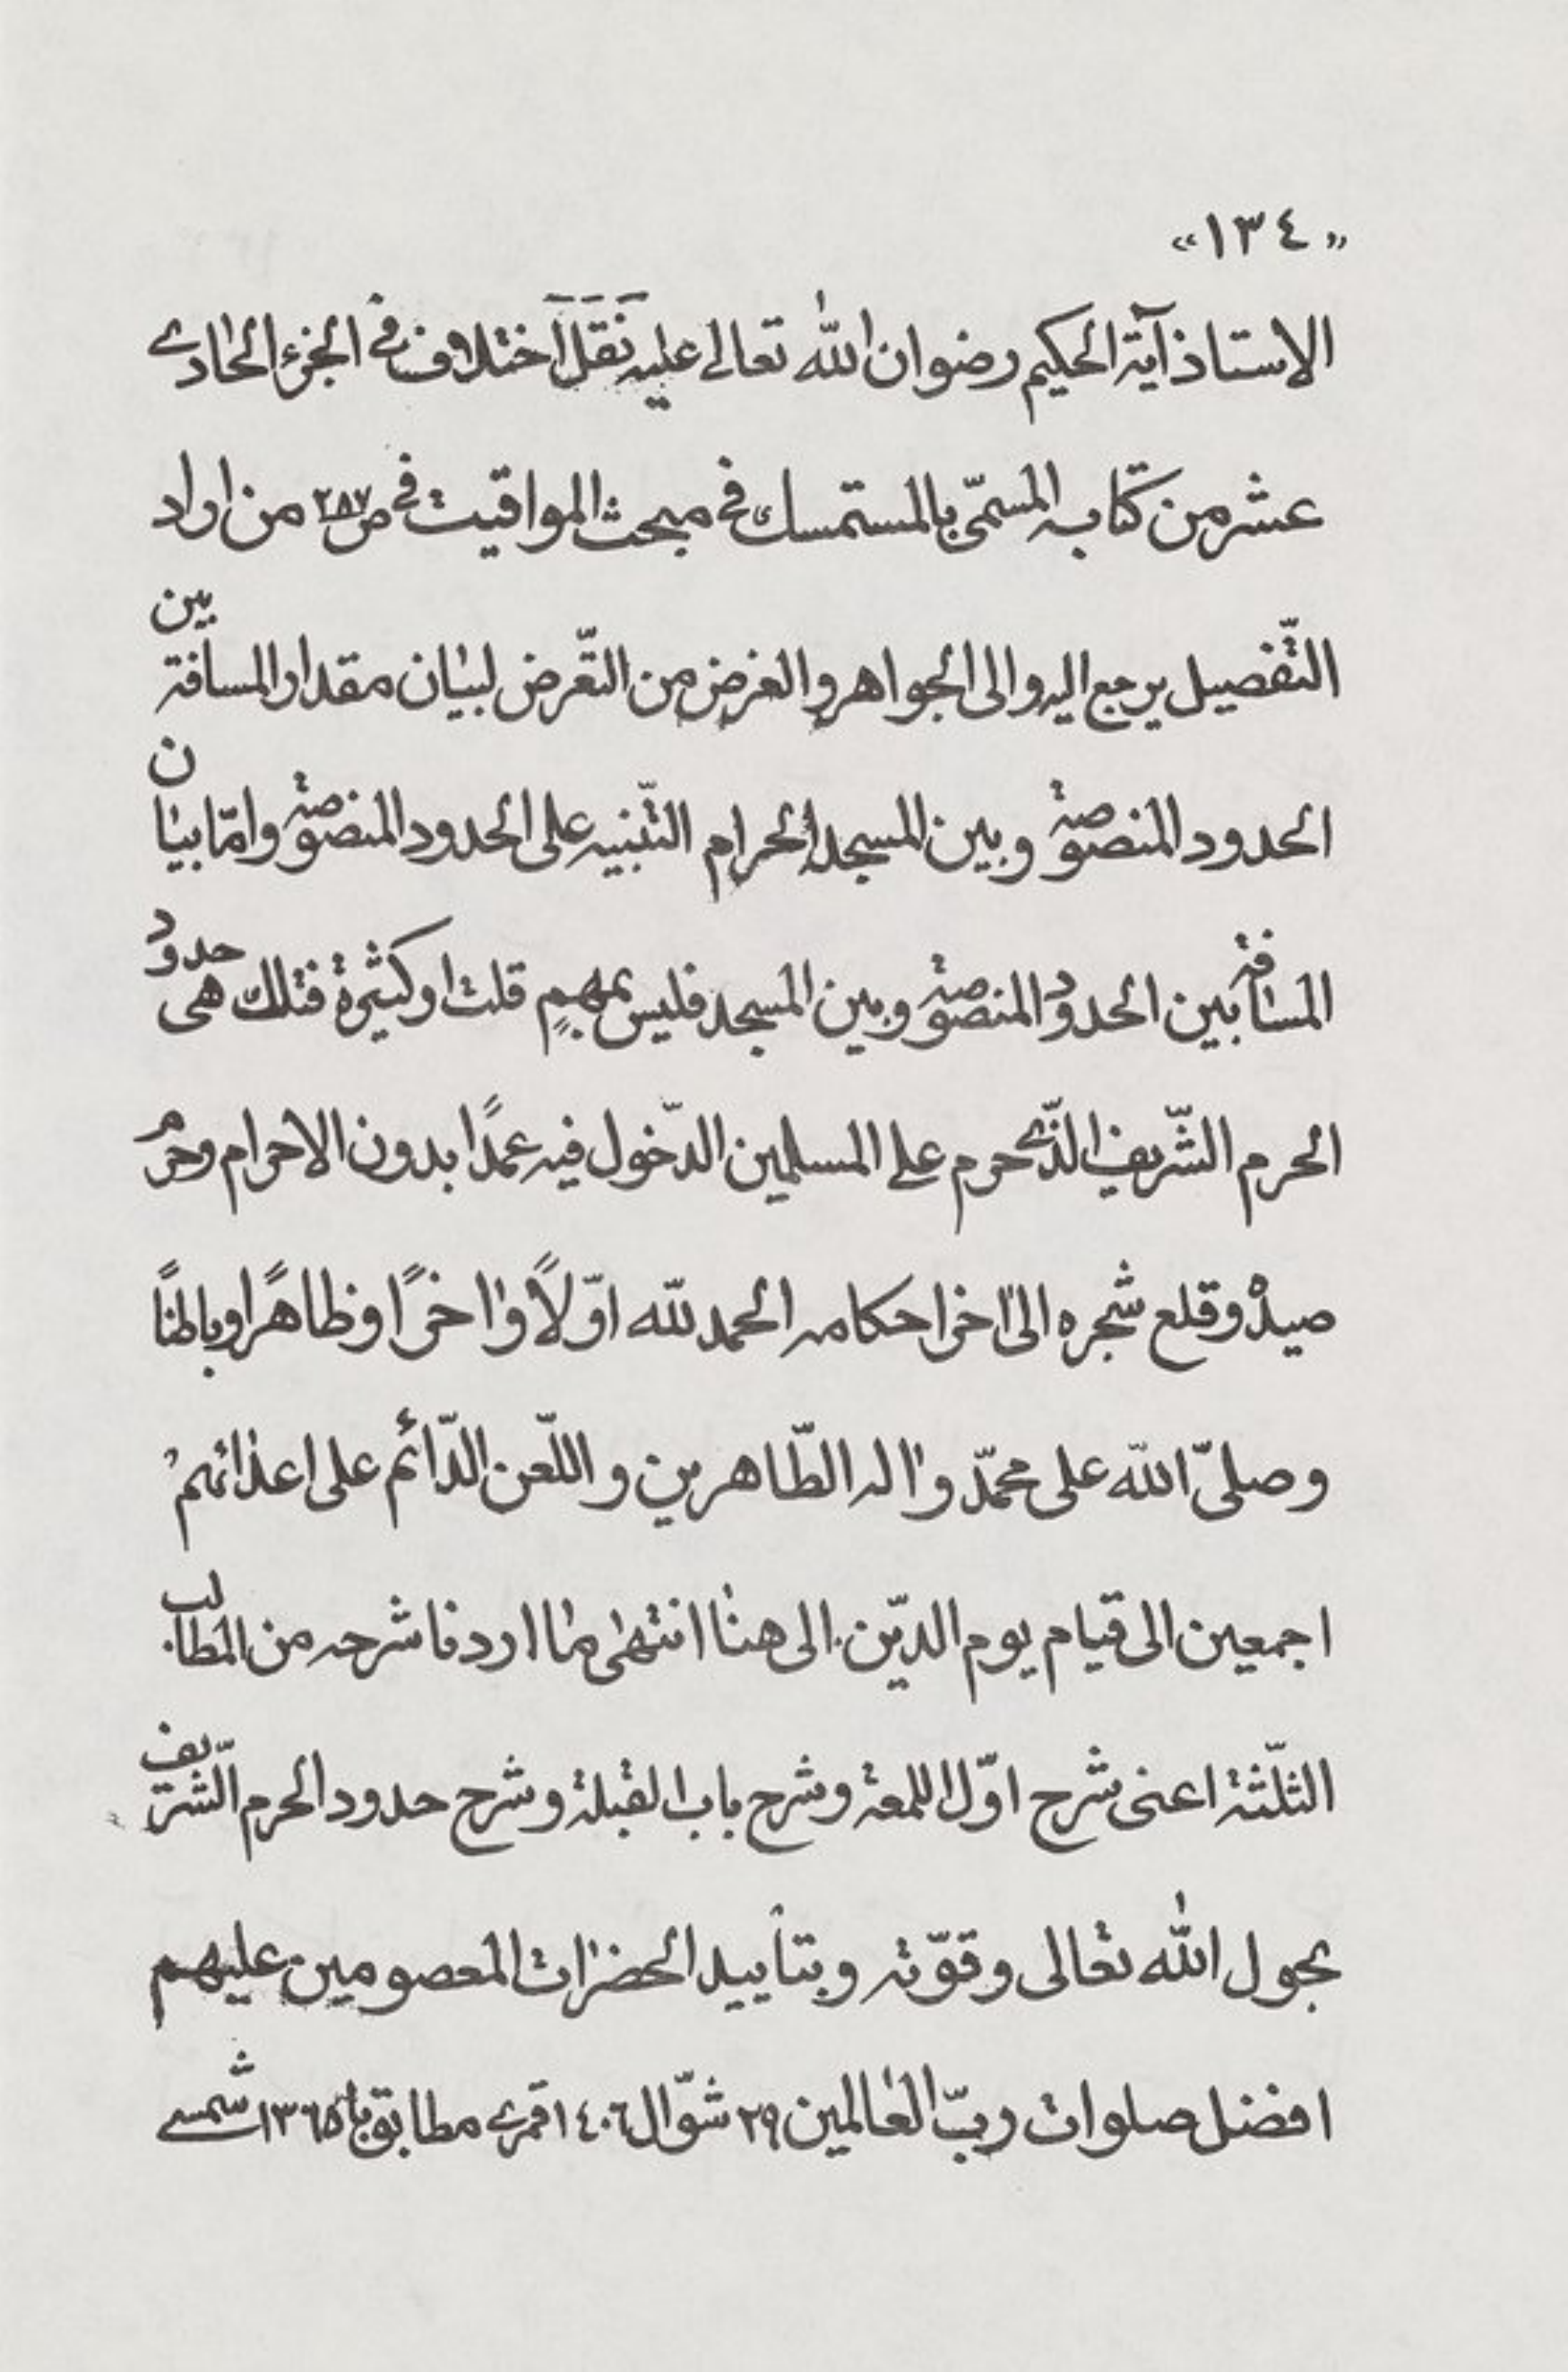 «١٣٤»
الاستاذ آية الحكيم رضوان الله تعالى عليه نَقَلَ اختلافاً في الجزء الحادى
عشر من كتابه المسمّى بالمستمسك في مبحث المواقيت في ص ٢٨٧ من اراد
التّفصيل يرجع اليه والى الجواهر والغرض من التعّرض لبيان مقدار المسافة بين
الحدود المنصوصة وبين المسجد الحرام التّنبيه على الحدود المنصوصة وامّا بيان
المسافة بين الحدود المنصوصة وبين المسجد فليس بمهمٍ قلت او كثيرة فتلك هى حدود
الحرم الشّريف الذّى حرم على المسلمين الدّخول فيه عمدًا بدون الاحرام وحرم
صيدهْ وقلع شجره الى اخر احكامه الحمد للّه اوّلاً واخرًا وظاهرًا وباطنًا
وصلىّ اللّه على محمّد واله الطّاهرين و اللّعن الدّائم على اعدائهمْ
اجمعين الى قيام يوم الدّين. الى هنا انتهى ما اردنا شرحه من المطالب
الثلّثة اعنى شرح اوّل اللمعة وشرح باب القبلة وشرح حدود الحرم الشّريف
بحول الله تعالى وقوّته وبتأييد الحضرات المعصومين عليهم
افضل صلوات ربّ العالمين ٢٩ شوّال ١٤٠٦ قمرى مطابق با ١٣٦٥ شمسى